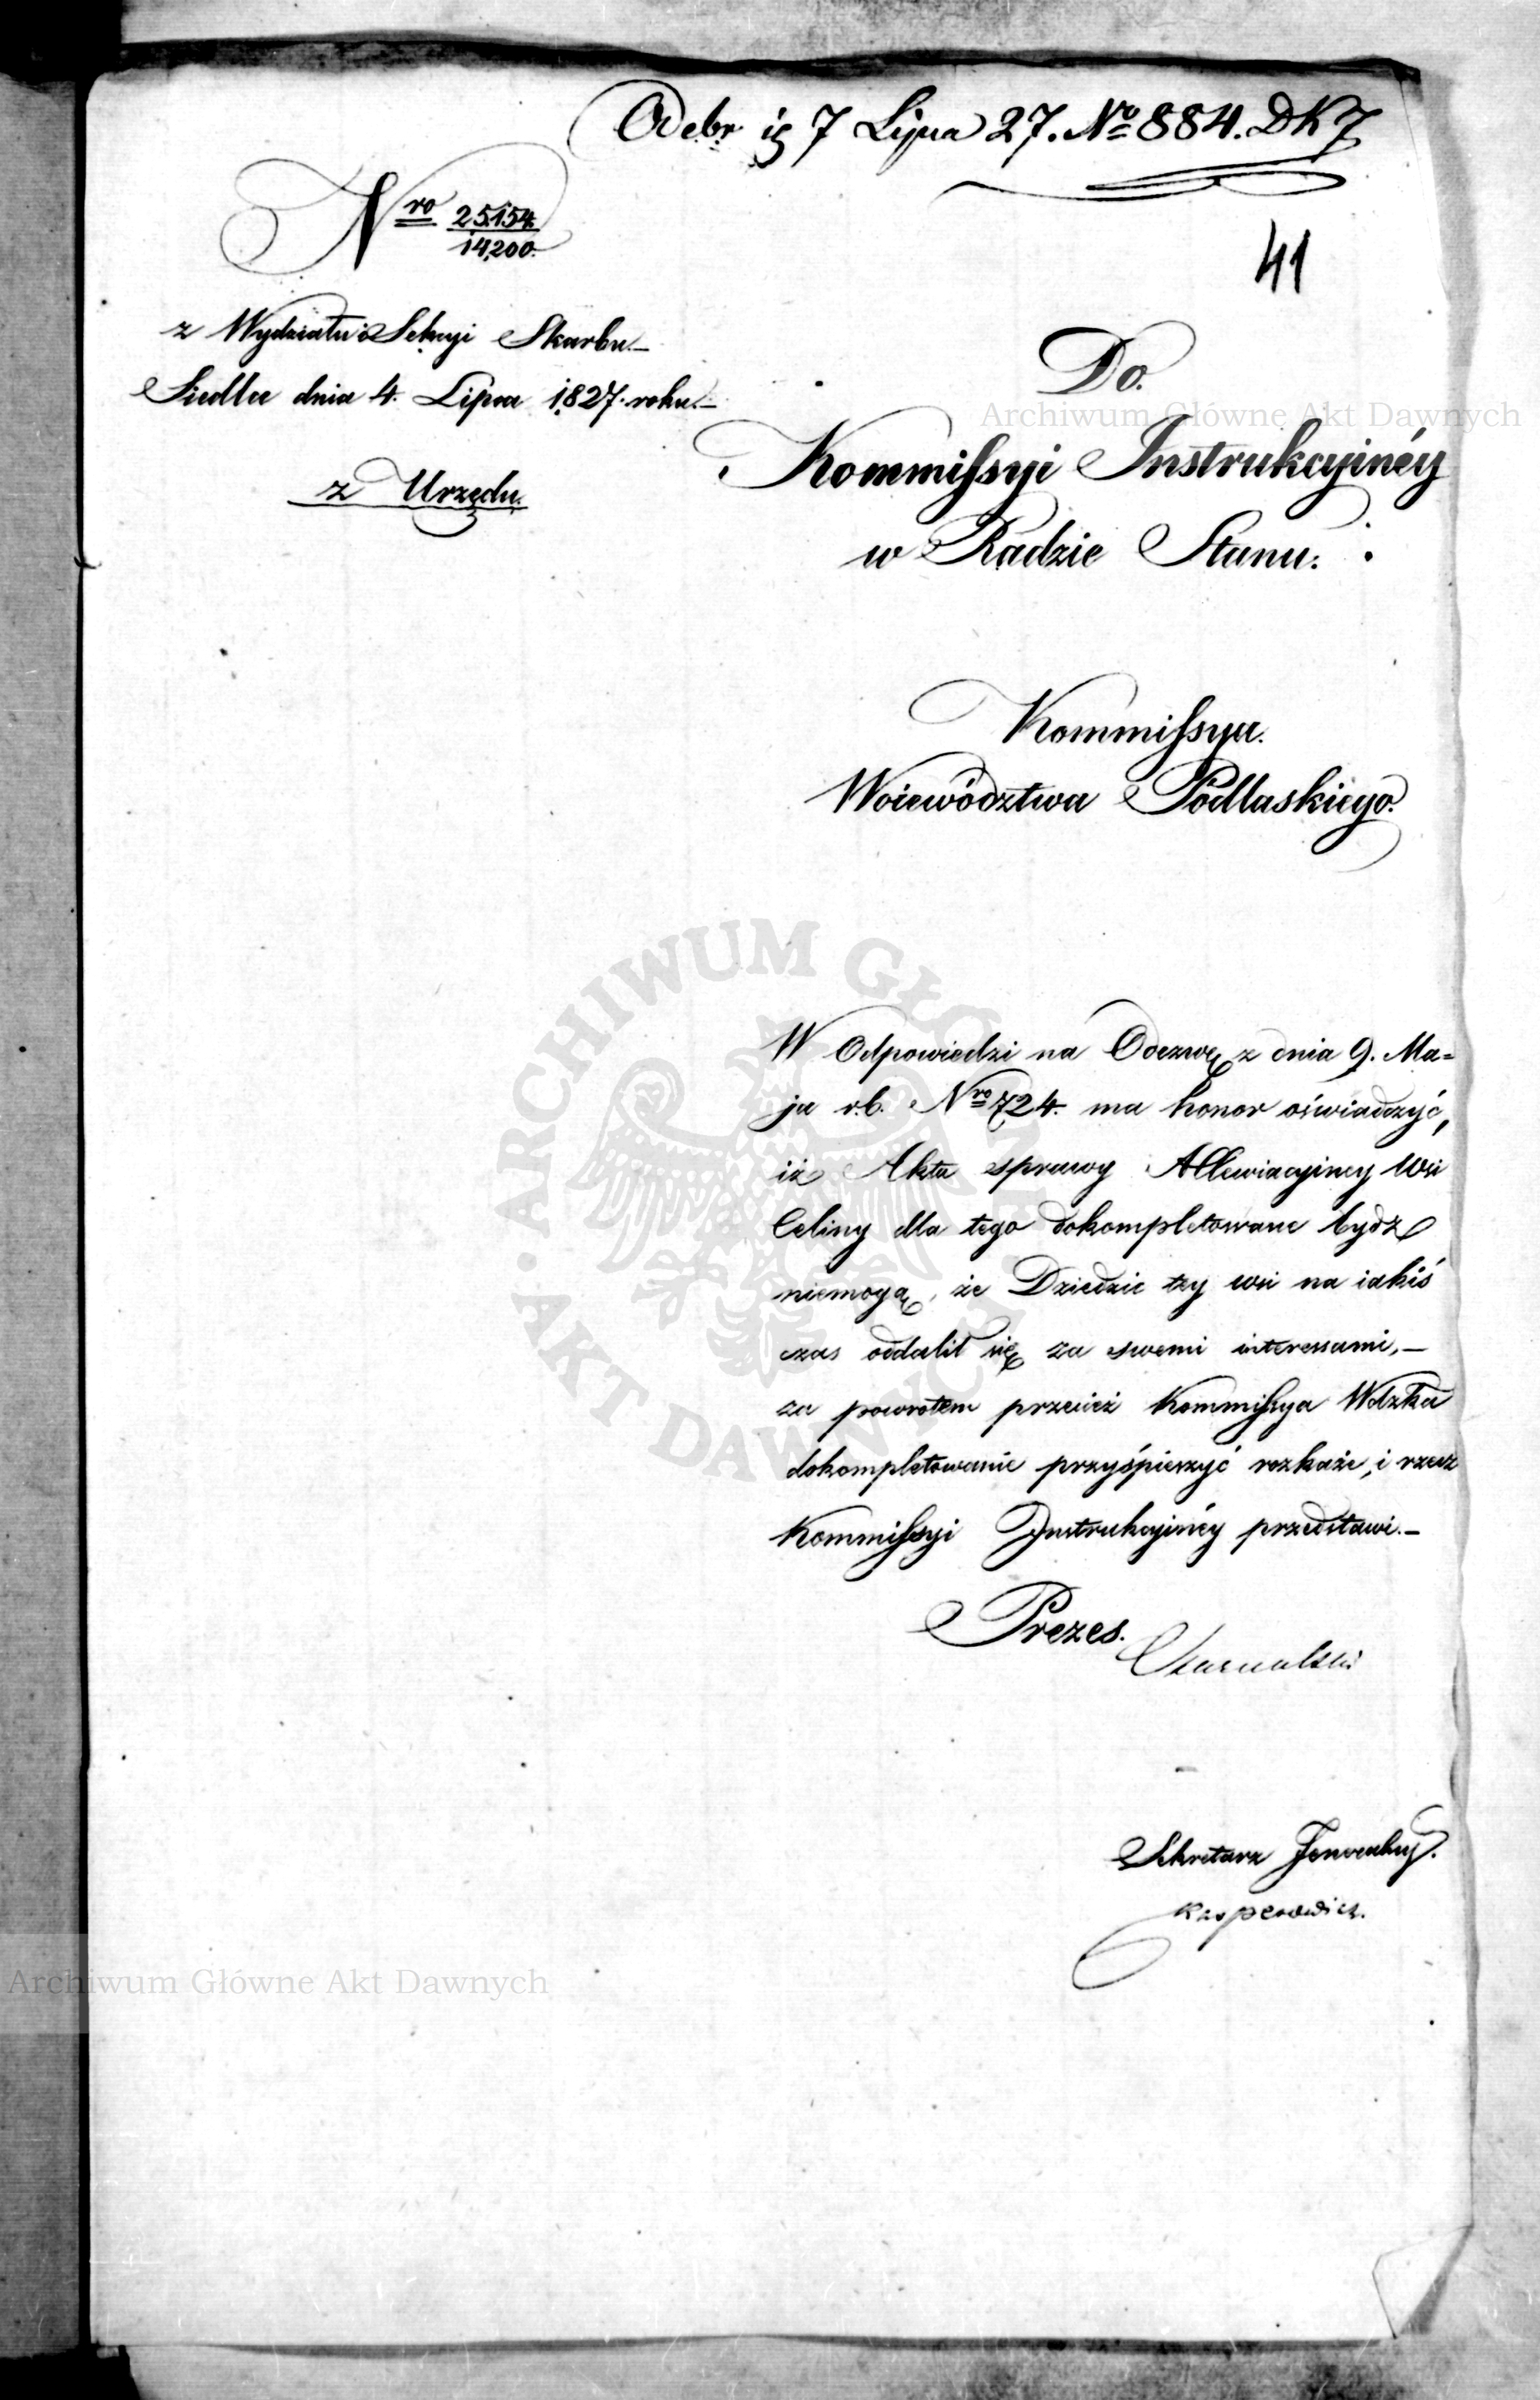 Odebr: 7 Lipca 27. No 884. DK7
Nro 25154.
14,200.
41
z Wydziału i Sekcyi Skarbu.–
Siedlce dnia 4. Lipca 1827. roku.–
z Urzędu.
Do.
Kommissyi Instrukcyinéy
w Radzie Stanu.
Kommissya.
Woiewództwa Podlaskiego.
W Odpowiedzi na Odezwę z dnia 9. Ma=
ja r.b. Nro 724. ma honor oświadczyć,
iż Akta sprawy Allewiacyiney Wsi
Celiny dla tego dokompletowane bydz
niemogą, że Dziedzic tey wsi na iakiś
czas oddalił się za swemi interessami,–
za powrotem przecież Kommissya Wdzka
dokompletowanie przyśpieszyć rozkaże, i rzecz
Kommissyi Instrukcyinéy przedstawi.–
Prezes.
Sekretarz Jeneralny.
Kasperowicz.
Archiwum Główne Akt Dawnych
ARCHIWUM GŁÓWNE AKT DAWNYCH
Archiwum Główne Akt Dawnych